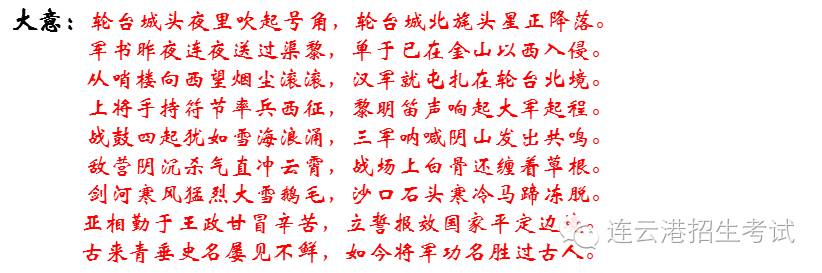 大意：轮台城头夜里吹起号角，轮台城北旄头星正降落。
军书昨夜连夜送过渠黎，单于已在金山以西入侵。
从哨楼向西望烟尘滚滚，汉军就屯扎在轮台北境。
上将手持符节率兵西征，黎明笛声响起大军起程。
战鼓四起犹如雪海浪涌，三军呐喊阴山发出共鸣。
敌营阴沉杀气直冲云霄，战场上白骨还缠着草根。
剑河寒风猛烈大雪鹅毛，沙口石头寒冷马蹄冻脱。
亚相勤于王政甘冒辛苦，立誓报效国家平定边
古来青垂史名屡见不鲜，如今将军功名胜过古人。
连云港招生考试